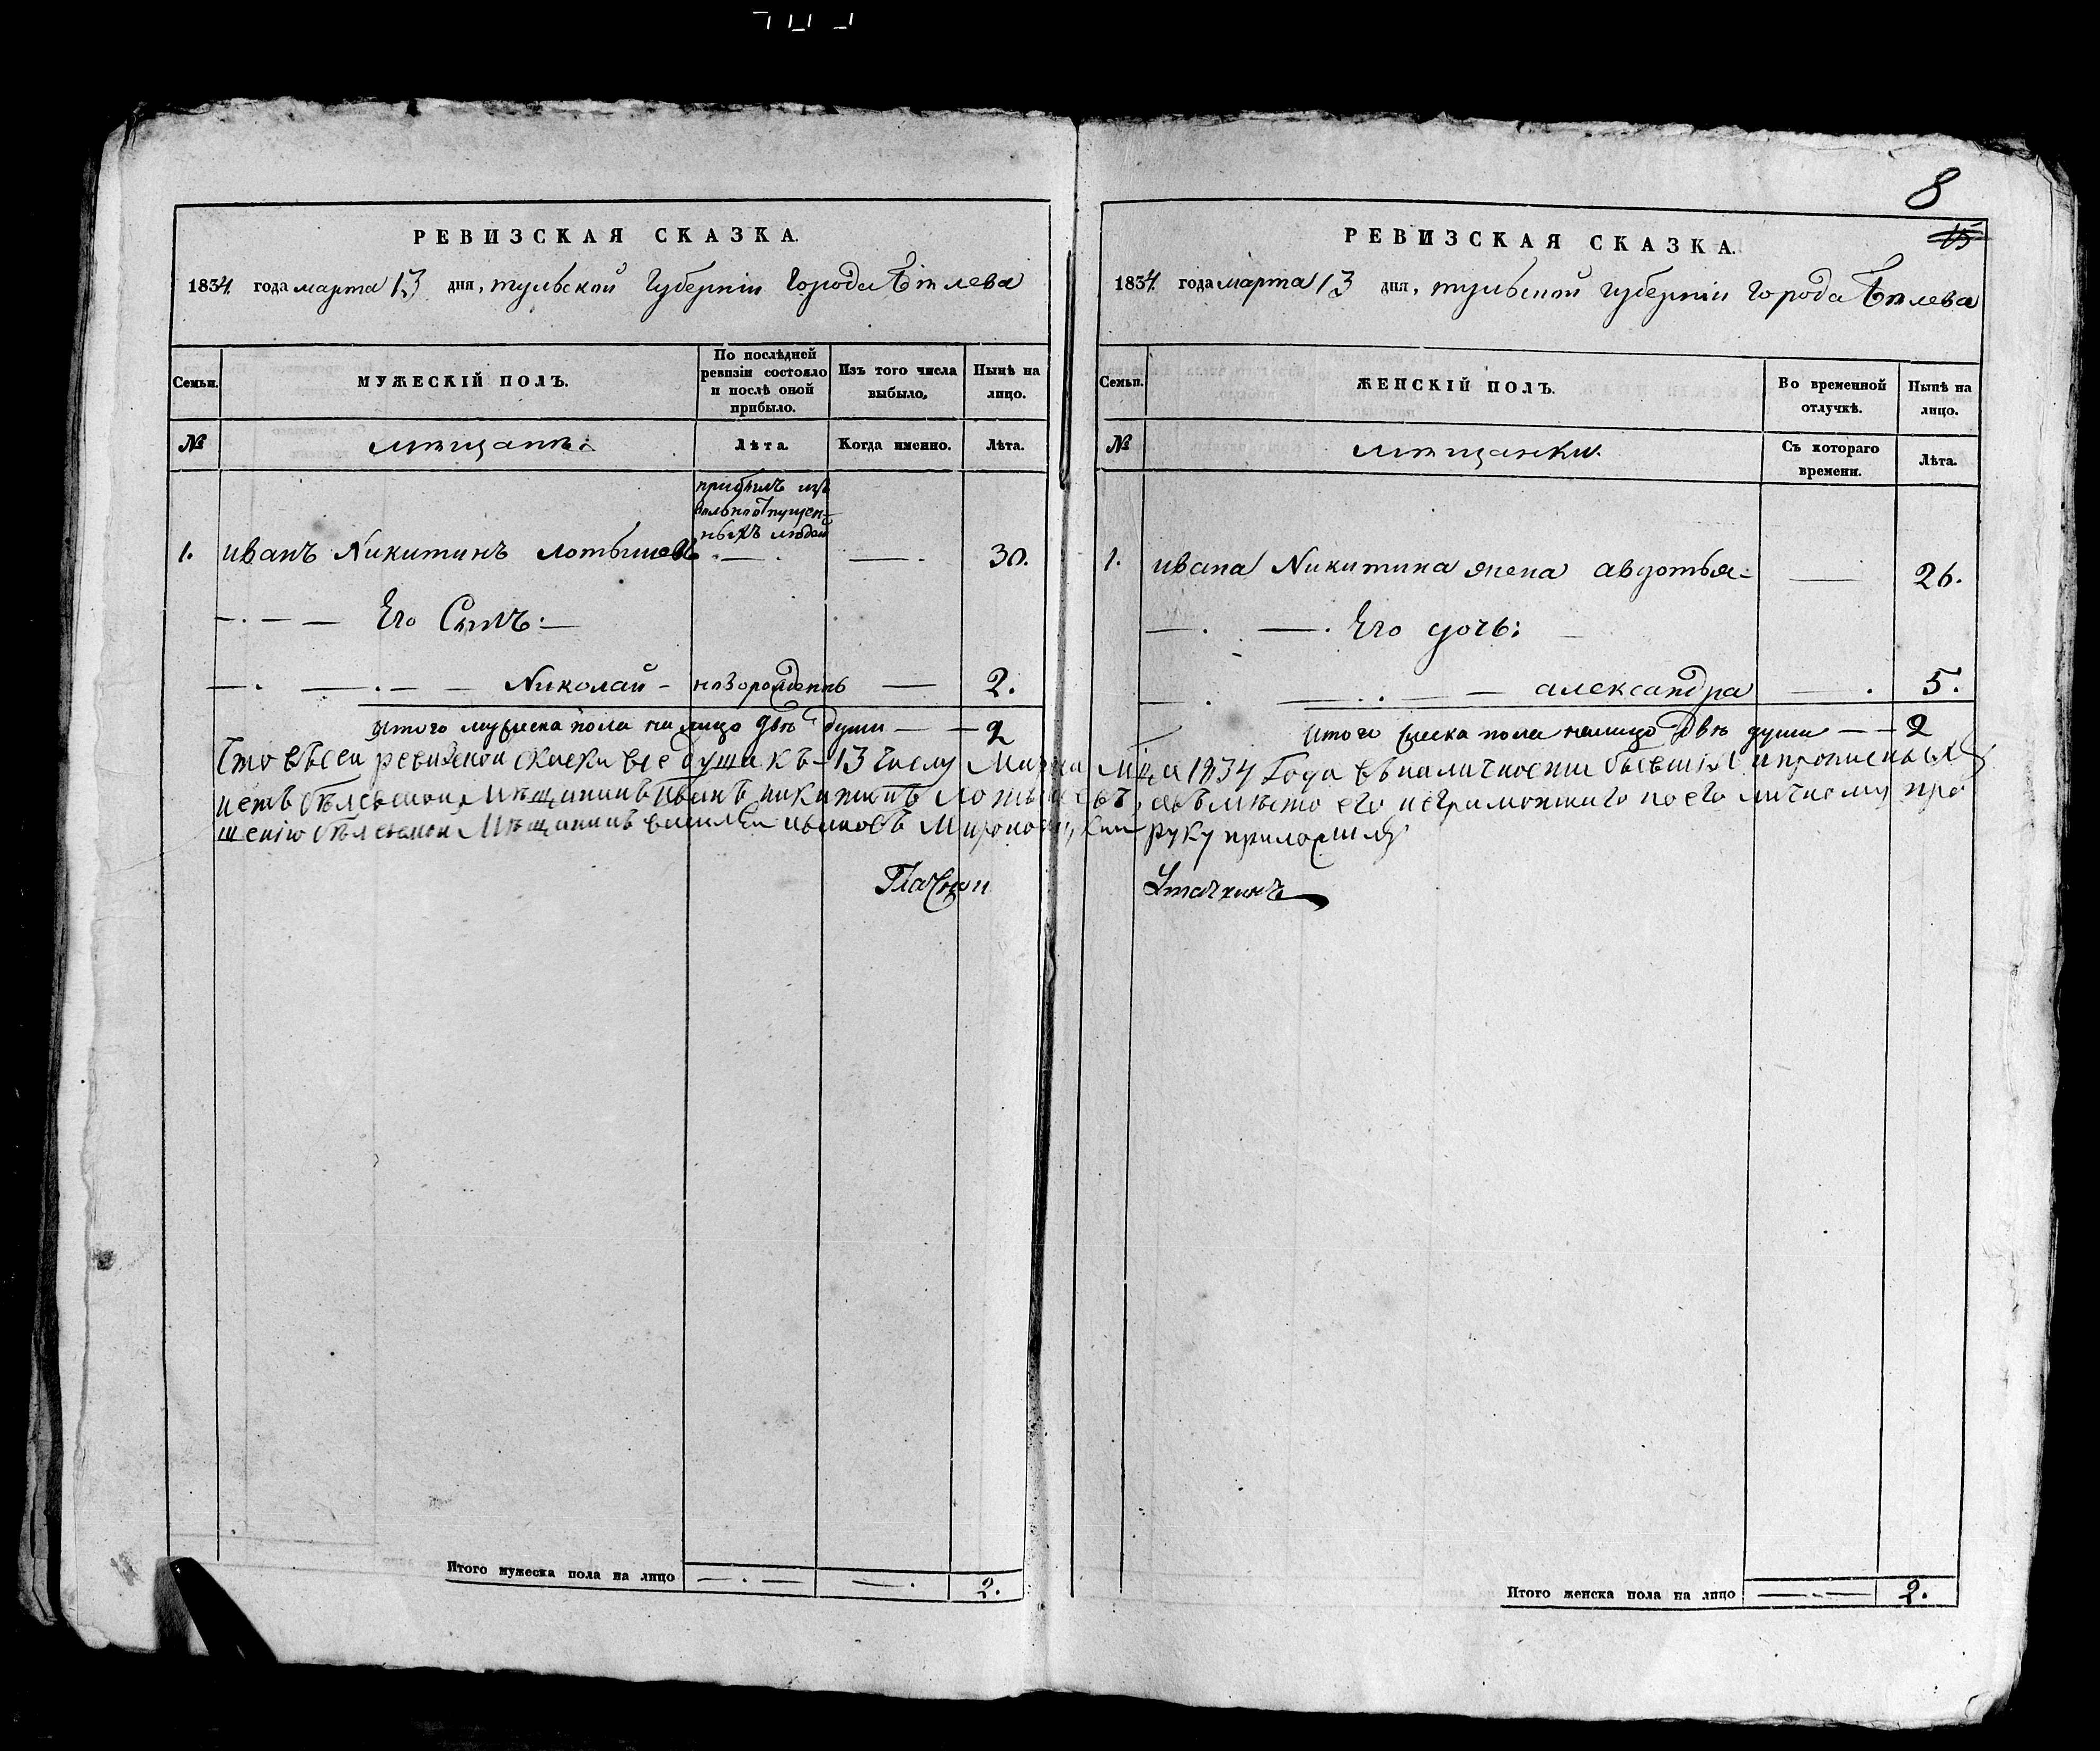 РЕВИЗСКАЯ СКАЗКА.
1834 года марта 13 дня, тульской Губерніи Города Бѣлева
Семьи.
МУЖЕСКІЙ ПОЛЪ.
По послѣдней ревизіи состояло и послѣ оной прибыло.
Изъ того числа выбыло.
Нынѣ на лицо.
№
мѣщанѣ:
Лѣта.
Когда именно.
Лѣта.
прибылъ изъ
вольноотпущен-
ныхъ людей
1. иванъ Никитинъ лотышевъ — — 30.
Его Сынъ:
Николай - новорожденъ — 2.
Итого мужеска пола на лицо двѣ души — 2
Что въ сеи ревизской скаски все души къ 13 числу Марта
шению бѣлевской Мѣщининъ
Итого мужеска пола на лицо — . — — . 2.
8
15
РЕВИЗСКАЯ СКАЗКА.
1834. года марта 13 дня, тульской губерніи города Бѣлева
Семьи.
ЖЕНСКІЙ ПОЛЪ.
Во временной отлучкѣ.
Нынѣ на лицо.
№
мѣщанки.
Съ котораго времени.
Лѣта.
1. ивана Никитина жена авдотья — 26.
Его дочь:
александра — 5.
Итого женска пола налицо двѣ души — 2
1834 Года въ наличности бывшія
вмѣсто его по его личному про
руку приложилъ
Итого женска пола на лицо — 2.